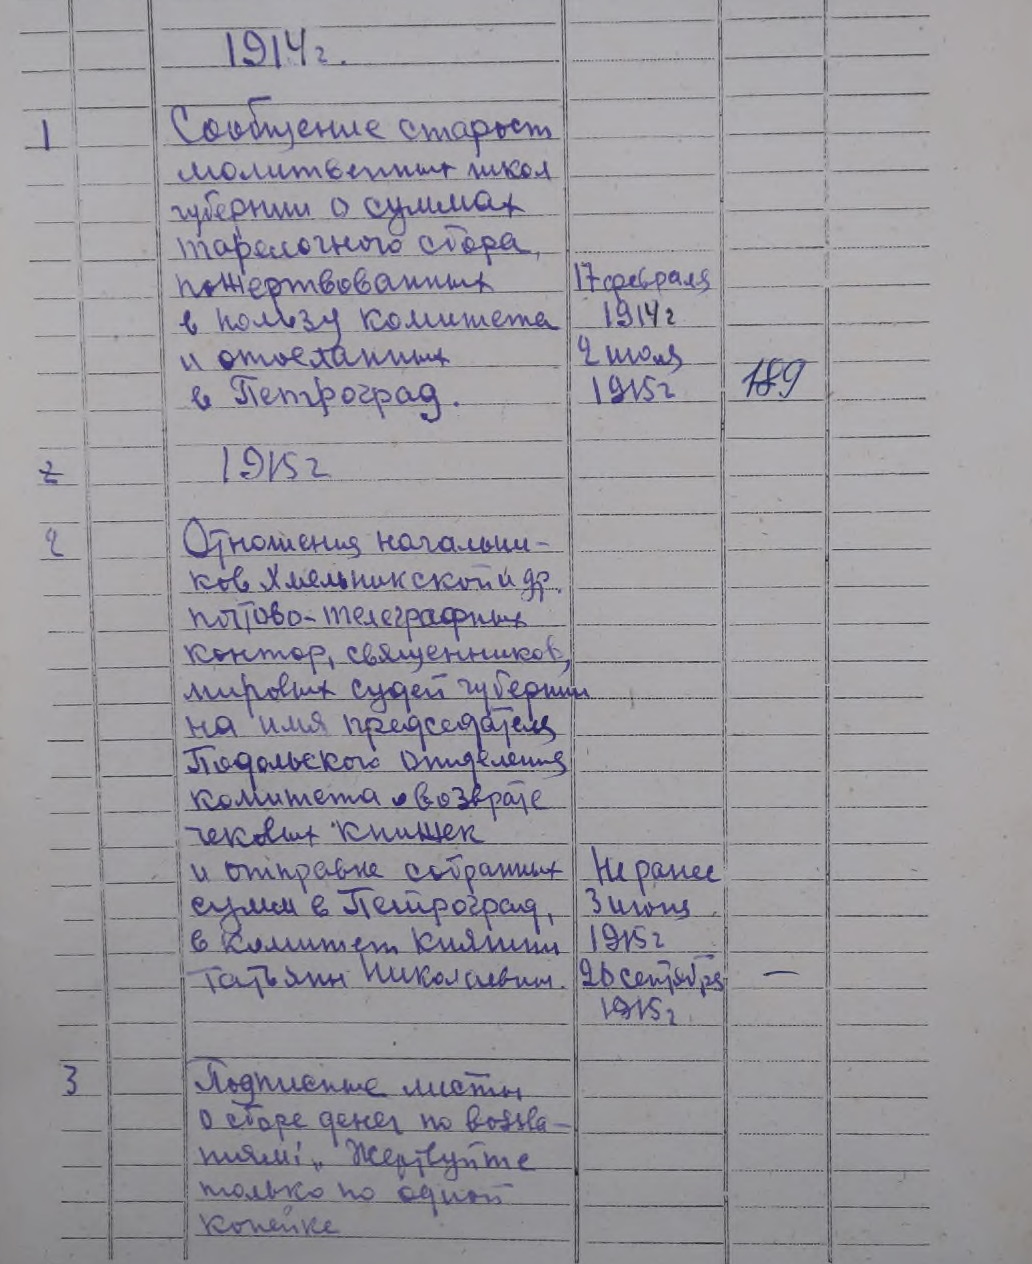 1914г.
1 Сообщение старост
молитвенных школ
губернии о суммах
тарелочного сбора,
пожертвованных 17 февраля
в пользу комитета 1914г
и отосланных 2 июля
в Петроград. 1915г 189
2 1915г
2 Отношения начальни-
ков Хмельникской и др.
почтово-телеграфных
контор, священников,
мировых судей губернии
на имя председателя
Подольского отделения
комитета о возврате
чековых книжек
и отправке собранных Не ранее
сумм в Петроград, 3 июня
в комитет княжны 1915г
Татьяны Николаевны. 26 сентября —
1915г
3 Подписные листы
о сборе денег по воззва-
ниям: „Жертвуйте
только по одной
копейке